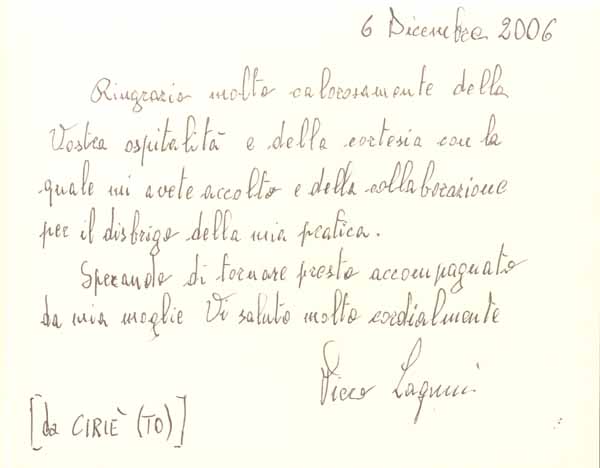 6 Dicembre 2006
Ringrazio molto calorosamente della
Vostra ospitalità e della cortesia con la
quale mi avete accolto e della collaborazione
per il disbrigo della mia pratica.
Sperando di tornare presto accompagnato
da mia moglie Vi saluto molto cordialmente
[da CIRIÈ (TO)]